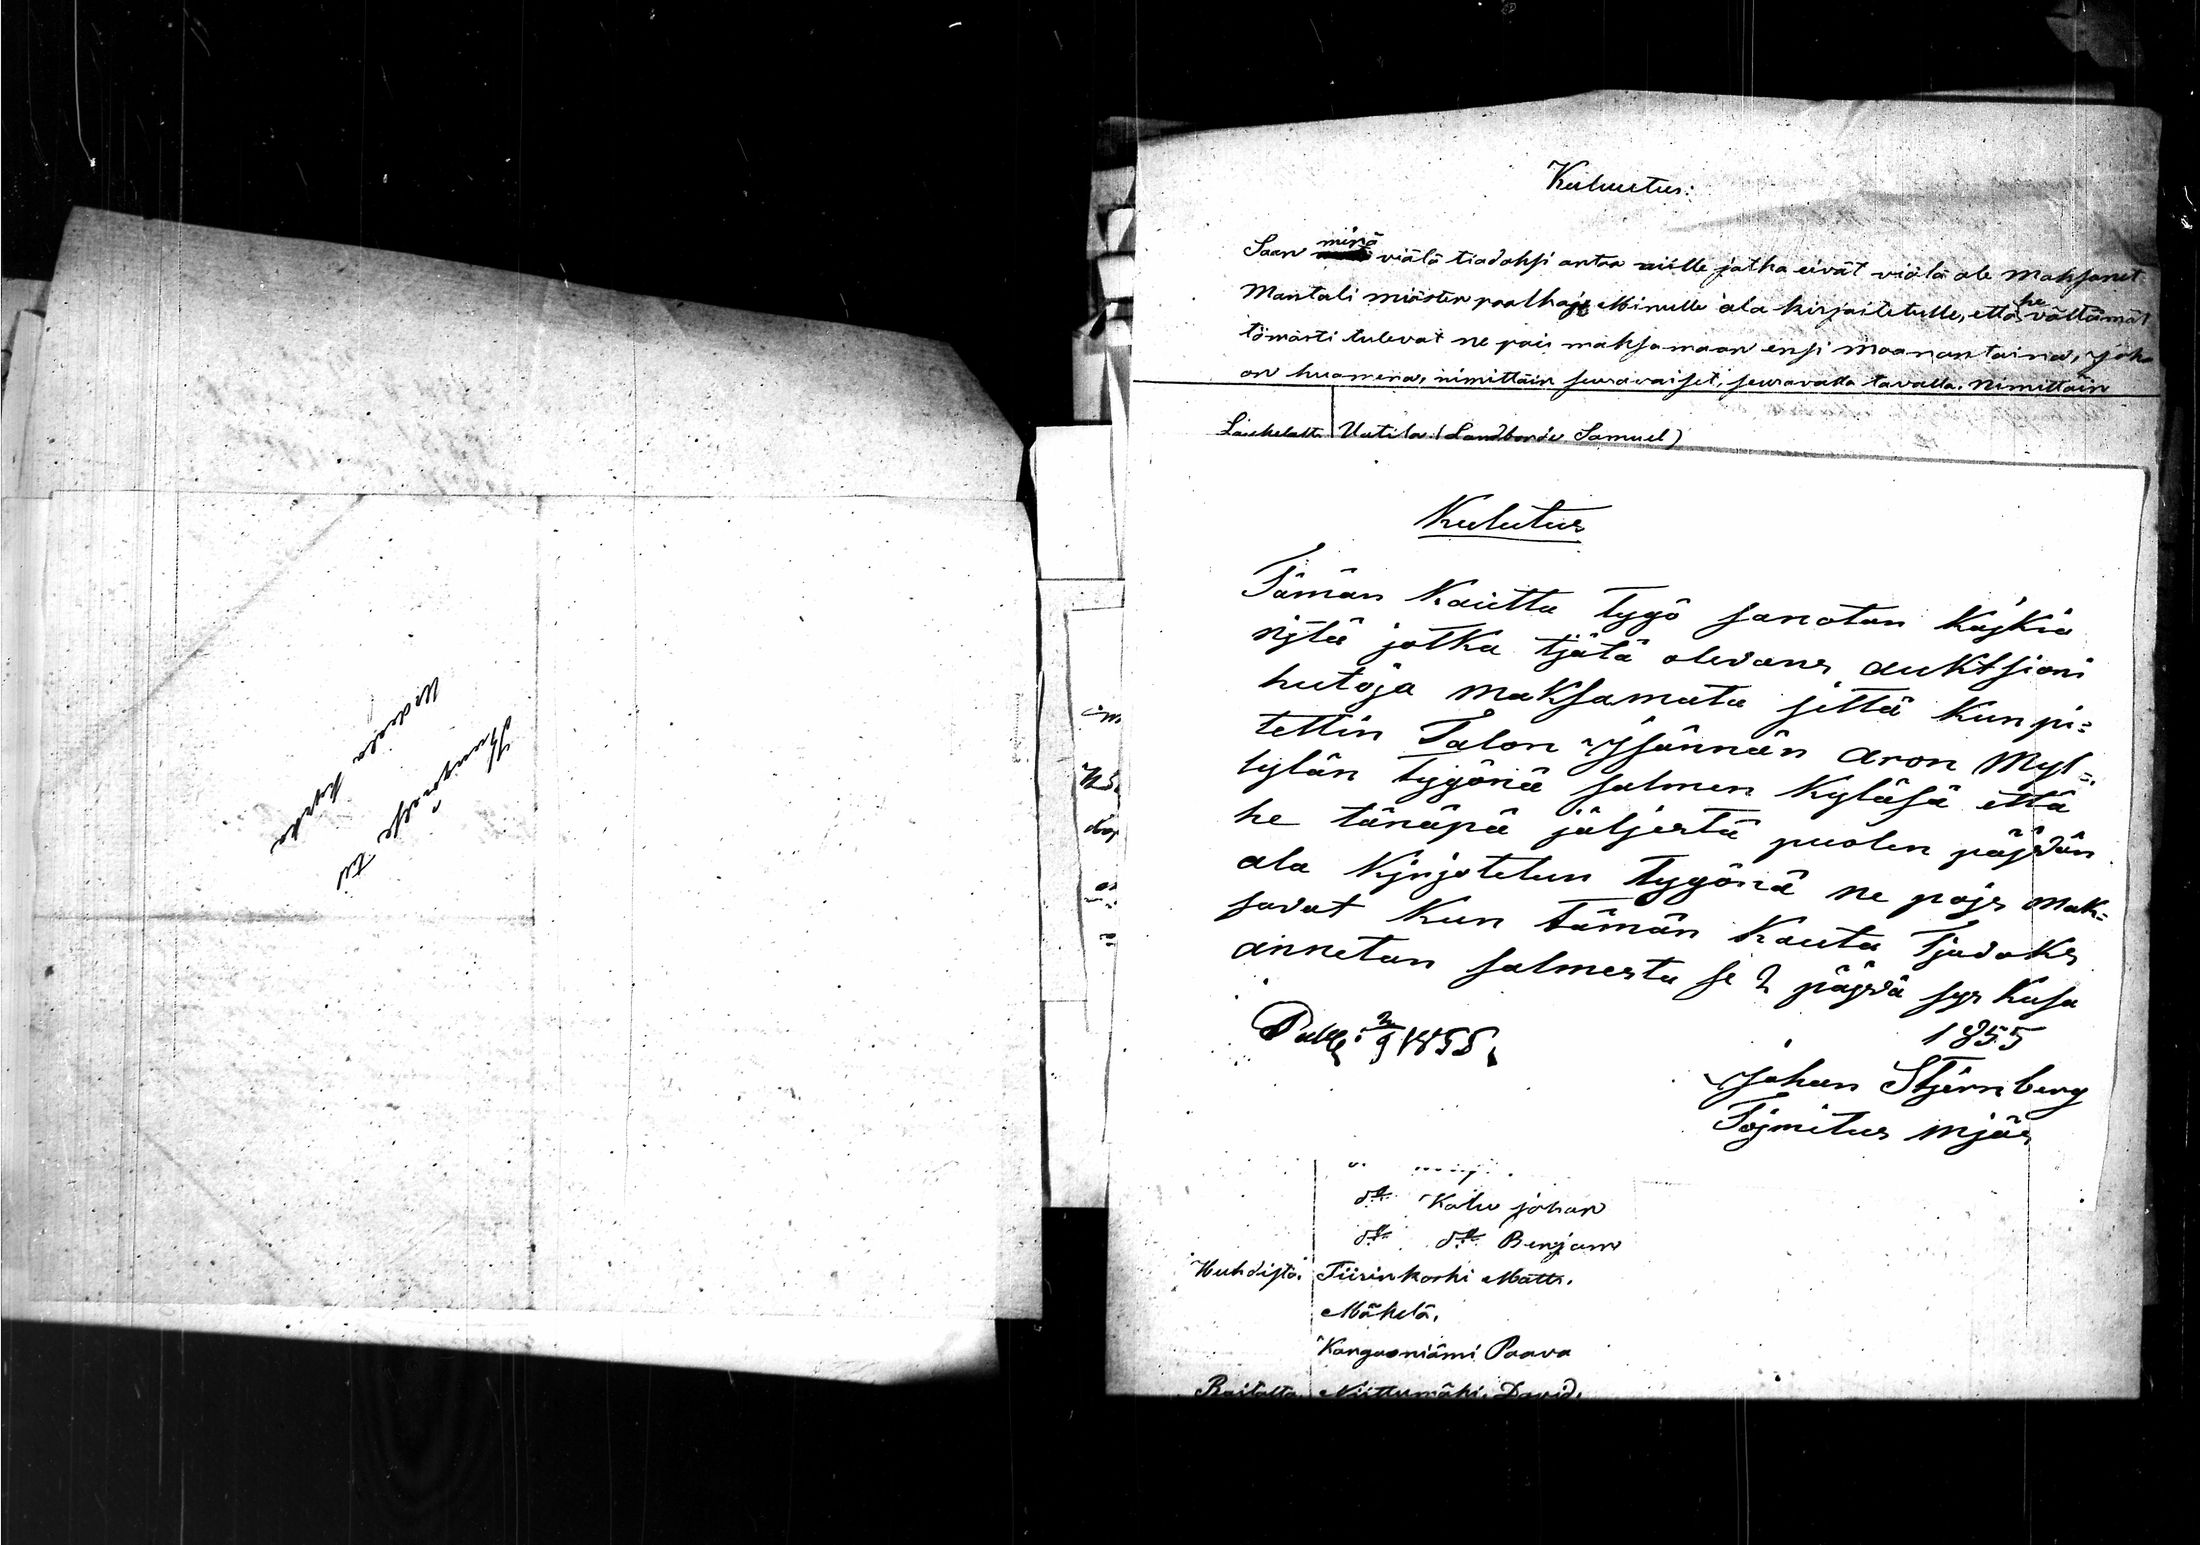 Kuluutus:
Saan minä viälä tiadoksi antaa niille jotka eivät viälä ole Maksanet
Mantali miästen paalhaje Minulle ala kirjoiletulle, että he välttämät
tömästi tulevat ne pois maksamaan ensi Maanantaina, joka
on huomena, nimittäin seuravaiset, seuravalla tavalla. Nimittäin
Laukelalta Uutila (Landbonde Samuel)
Kulutus
Tämän Kautta Tygö sanotan Käjkiä
nijtä jotka tjätä olevans auktsioni
hutoja maksamata jittä Kun pi=
tettin Talon Jsännän Aron Myl=
lylän Tygönä salmen Kyläsä että
he tänäpä jäljestä puolen päjvän
ala Kjrjotetun Tygönä ne pojs mak=
savat Kun tämän Kauta Tjadoks
annetan salmesta se 2 päjvä sys Kusa
1855
Johan Stjernberg
Tojmitus mjäs
2/9 1855.
Katu Johan
Benjam
Huhdista. Tiirinkoski Matts.
Mäkelä.
Kangasniämi Paava
Raitalta Niittumäki David.